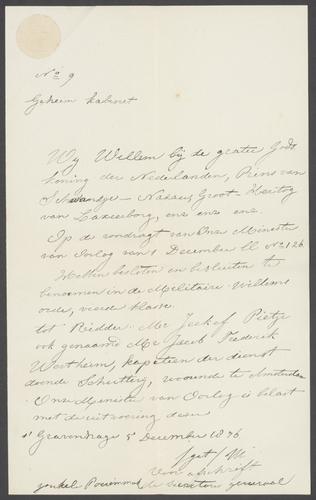 No 9
Geheim Kabinet
Wij Willem bij de gratie Gods
koning der Nederlanden, Prins van
Oranje-Nassau, Groot-Hertog
van Luxemburg, enz enz enz.
Op de voordragt van Onze Minister
van Oorlog van 1 December ll No 126
Hebben besloten en besluiten te
benoemen in de Militaire Willems
orde, vierde klasse
tot Ridder Mr
ook genaamd Mr Jacob Frederik
Wertheim, kapitein der dienst
doende Schutterij, woonende te Amsterdam
Onze Minister van Oorlog is belast
met de uitvoering dezer
s' Gravenhage 5 December 1876
Voor afschrift
de secretaris generaal